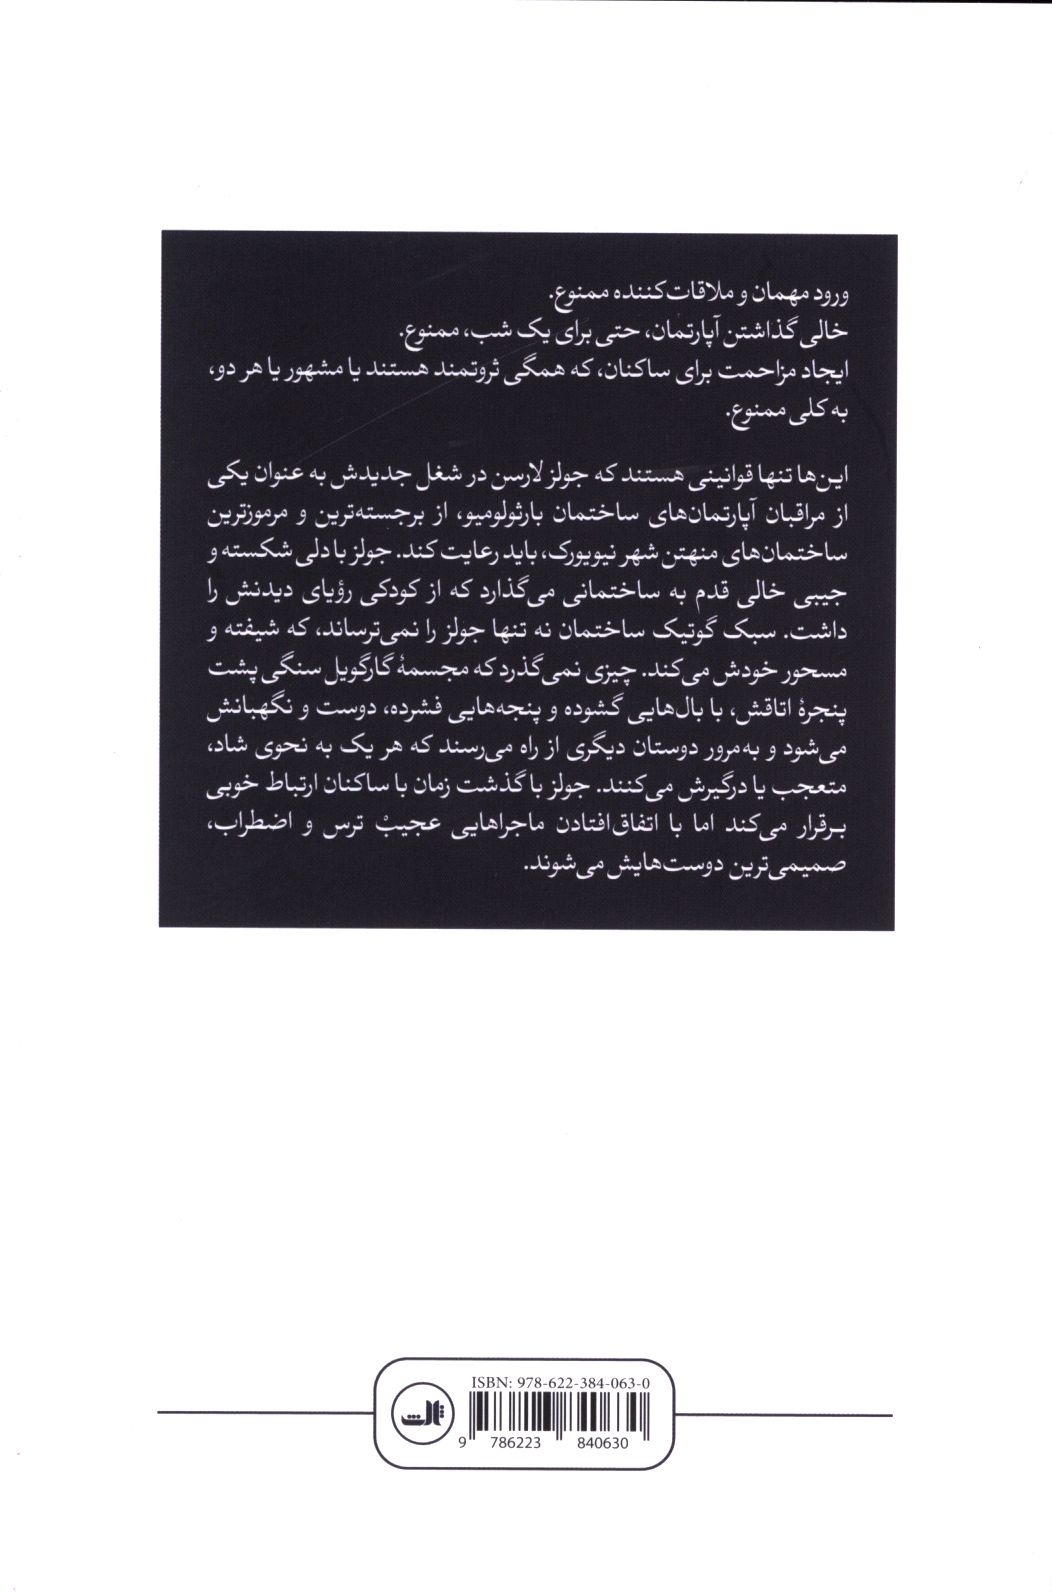 ورود مهمان و ملاقات‌کننده ممنوع.
خالی گذاشتن آپارتمان، حتی برای یک شب، ممنوع.
ایجاد مزاحمت برای ساکنان، که همگی ثروتمند هستند یا مشهور یا هر دو،
به کلی ممنوع.
این‌ها تنها قوانینی هستند که جولز لارسن در شغل جدیدش به عنوان یکی
از مراقبان آپارتمان‌های ساختمان بارثولومیو، از برجسته‌ترین و مرموزترین
ساختمان‌های منهتن شهر نیویورک، باید رعایت کند. جولز با دلی شکسته و
جیبی خالی قدم به ساختمانی می‌گذارد که از کودکی رؤیای دیدنش را
داشت. سبک گوتیک ساختمان نه تنها جولز را نمی‌ترساند، که شیفته و
مسحور خودش می‌کند. چیزی نمی‌گذرد که مجسمهٔ گارگویل سنگی پشت
پنجرهٔ اتاقش، با بال‌هایی گشوده و پنجه‌هایی فشرده، دوست و نگهبانش
می‌شود و به‌مرور دوستان دیگری از راه می‌رسند که هر یک به نحوی شاد،
متعجب یا درگیرش می‌کنند. جولز با گذشت زمان با ساکنان ارتباط خوبی
برقرار می‌کند اما با اتفاق‌افتادن ماجراهایی عجیبْ ترس و اضطراب،
صمیمی‌ترین دوست‌هایش می‌شوند.
ISBN: 978-622-384-063-0
ثالث
9 786223 840630